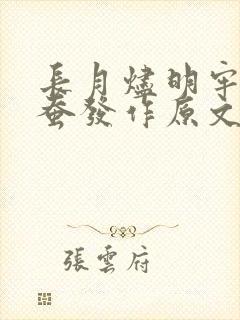 長月燼明宇
蚕發作原文
張雲府